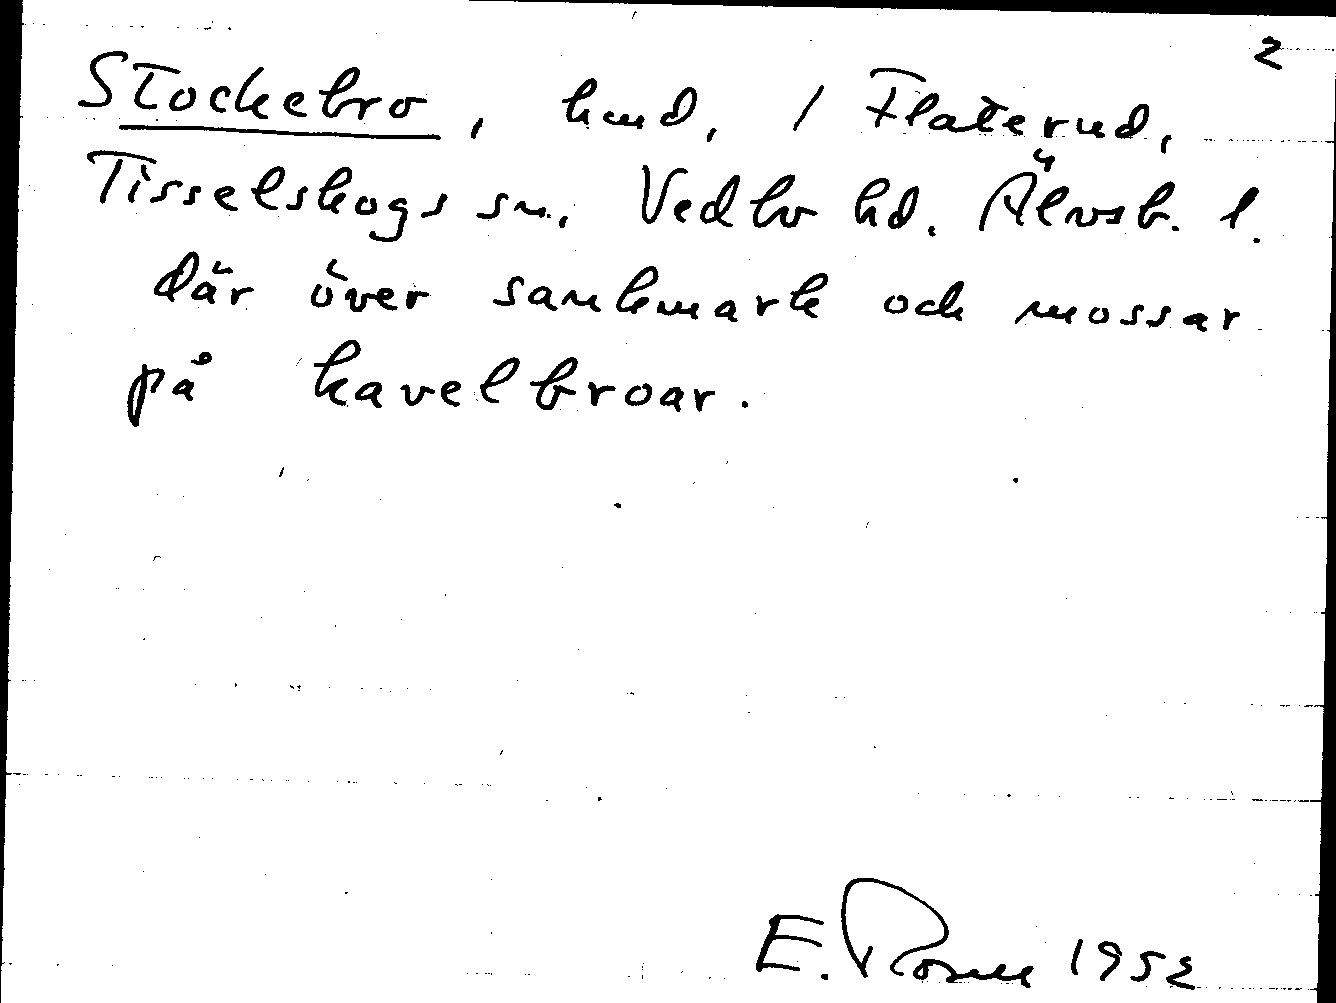 2
Stockebro, hmd, / Flaterud,
Tisselskogs sn. Vedbo hd. Älvsb. l.
där över sankmark och mossar
på kavelbroar.
E. Rosell 1952